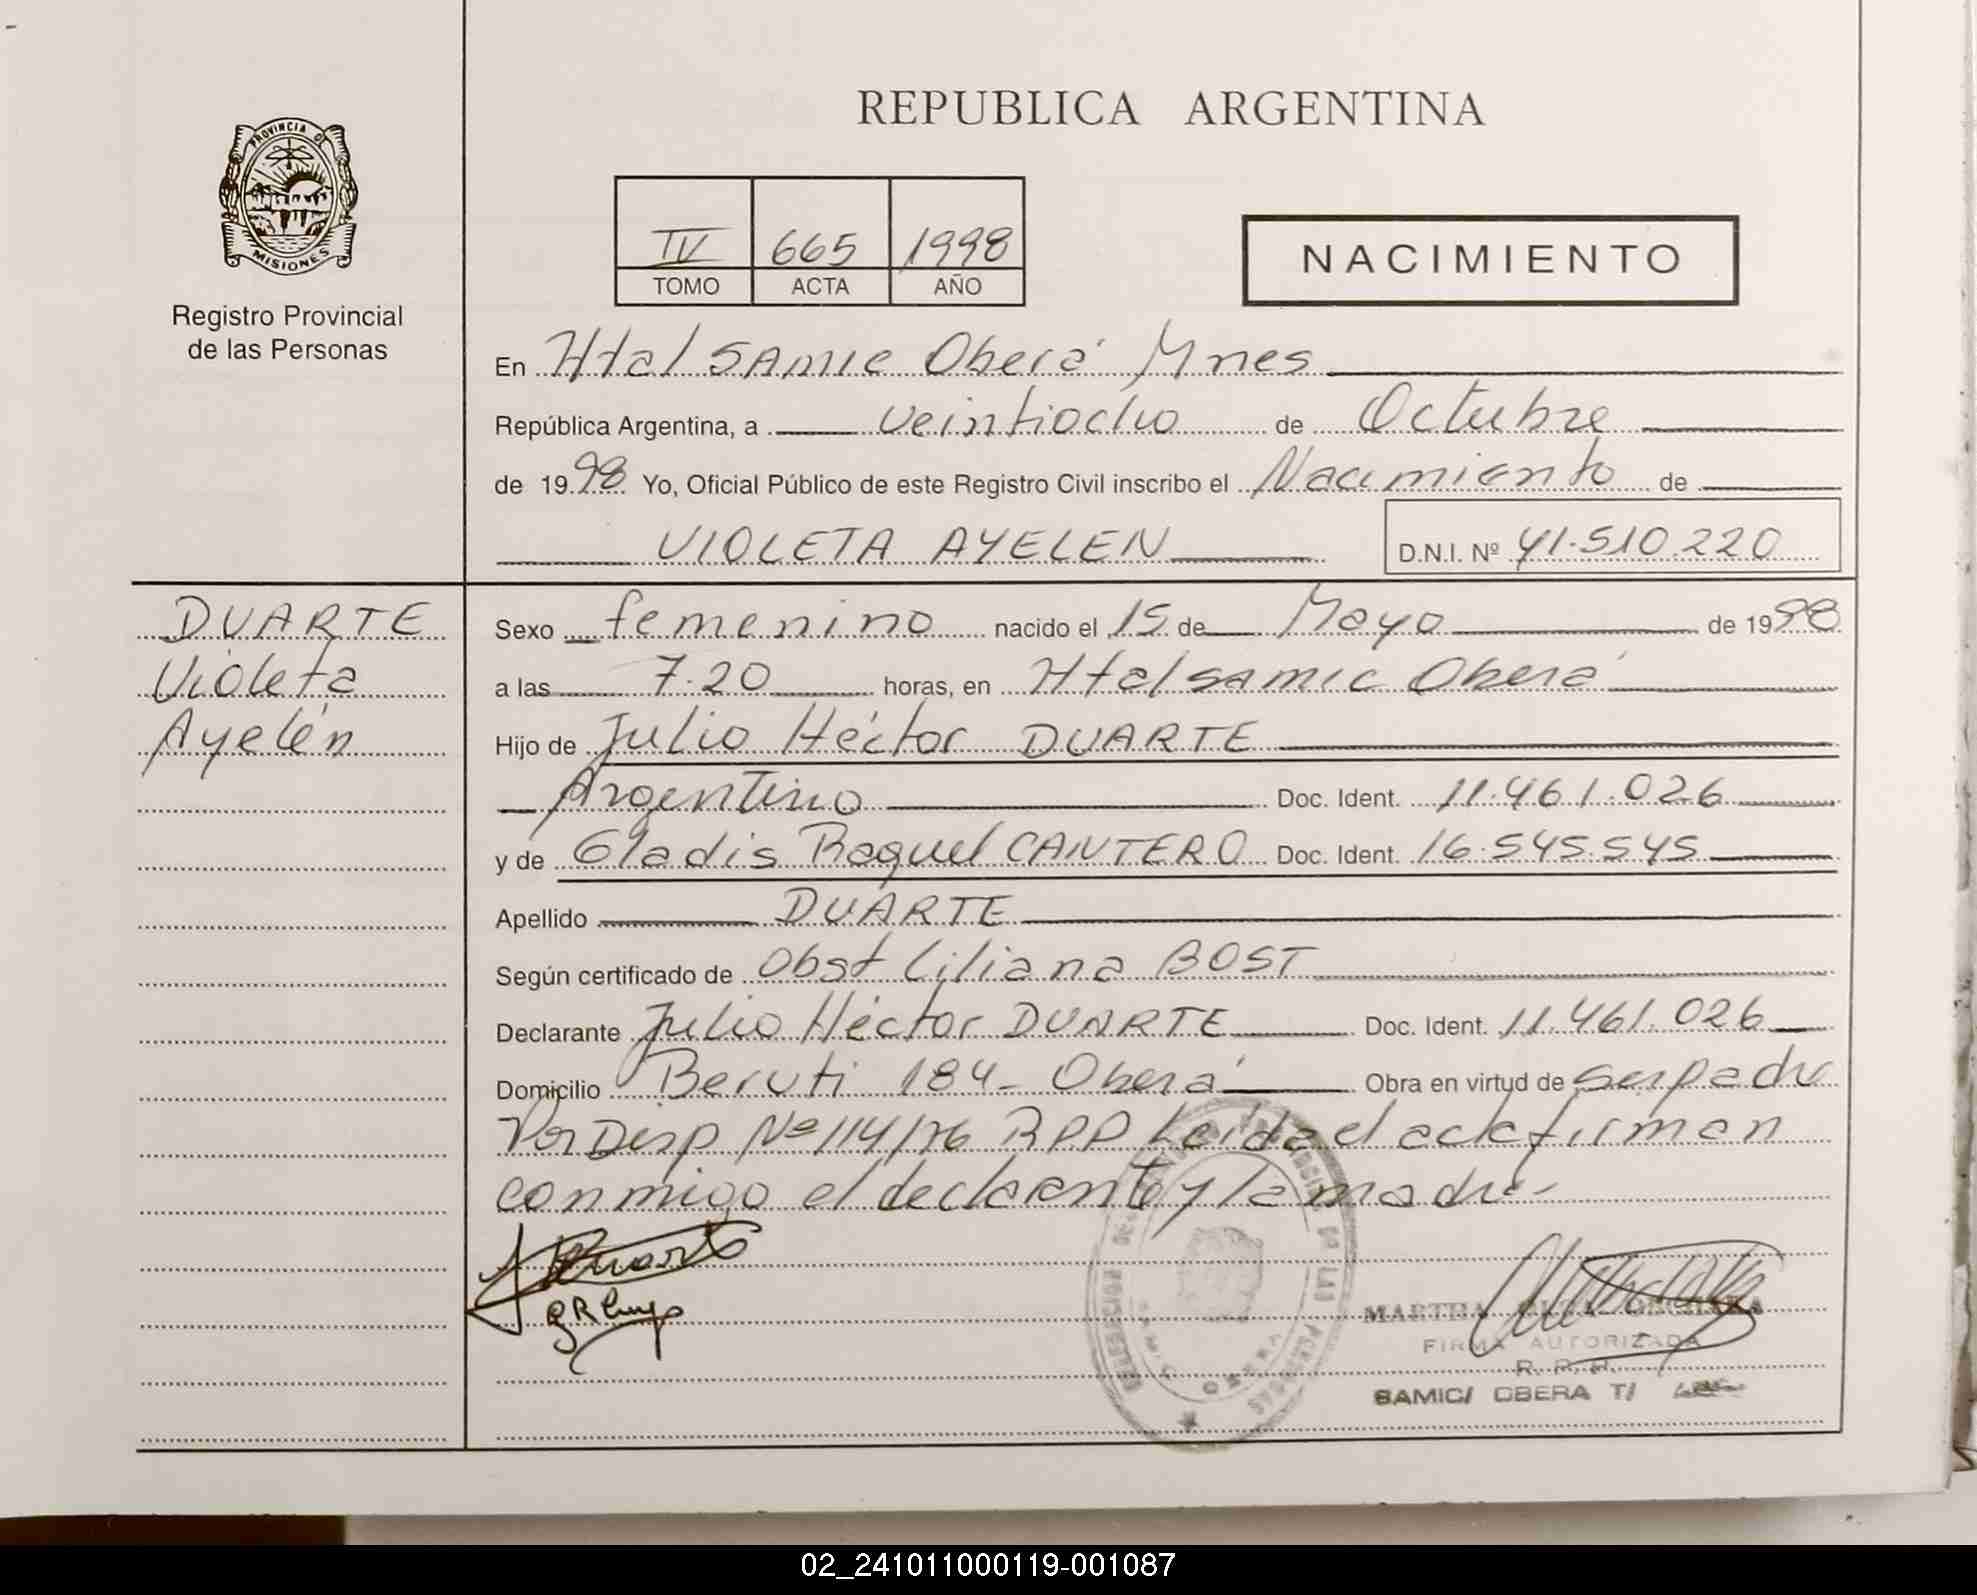 REPUBLICA ARGENTINA
PROVINCIA DE
MISIONES
Registro Provincial
de las Personas
IV 665 1998
TOMO ACTA AÑO
NACIMIENTO
En Htal SAMIC Oberá Mnes
República Argentina, a veintiocho de Octubre
de 1998 Yo, Oficial Público de este Registro Civil inscribo el Nacimiento de
VIOLETA AYELEN D.N.I. Nº 41.510.220
DUARTE
Violeta
Ayelén
Sexo femenino nacido el 15 de Mayo de 1998
a las 7.20 horas, en Htal samic Oberá
Hijo de Julio Héctor DUARTE
Argentino Doc. Ident. 11.461.026
y de Gladis Raquel CANTERO Doc. Ident. 16.545.545
Apellido DUARTE
Según certificado de Obst Liliana BOST
Declarante Julio Héctor DUARTE Doc. Ident. 11.461.026
Domicilio Beruti 184 - Oberá Obra en virtud de ser padre
Por Disp Nº 114/76 RPP Leida el acta firman
conmigo el declarante y la madre -
MARTHA
FIRMA AUTORIZADA
SAMIC/ OBERA T/
02_241011000119-001087